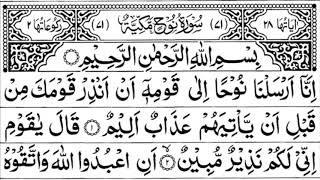 اٰیَاتُهَا ۲۸ (۷۱) سُوْرَةُ نُوْحٍ مَّكِّیَّةٌ (۷۱) رُكُوْعَاتُهَا ۲
بِسْمِ اللّٰهِ الرَّحْمٰنِ الرَّحِیْمِ
اِنَّاۤ اَرْسَلْنَا نُوْحًا اِلٰی قَوْمِهٖۤ اَنْ اَنْذِرْ قَوْمَكَ مِنْ
قَبْلِ اَنْ یَّاْتِیَهُمْ عَذَابٌ اَلِیْمٌ ۱ قَالَ یٰقَوْمِ
اِنِّیْ لَكُمْ نَذِیْرٌ مُّبِیْنٌ ۲ اَنِ اعْبُدُوا اللّٰهَ وَاتَّقُوْهُ